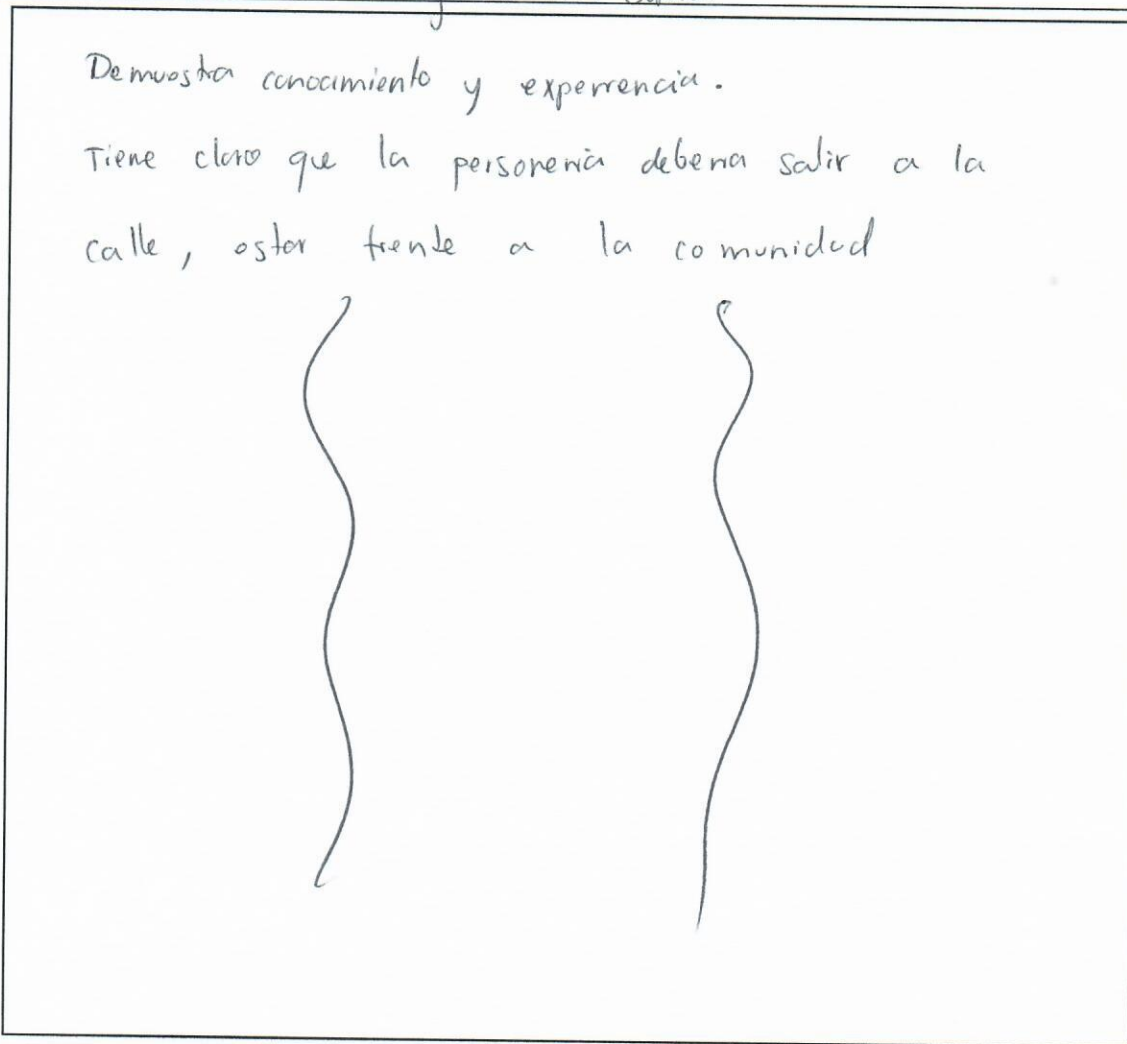 Demuestra conocimiento y experiencia.
Tiene claro que la personería debería salir a la
calle, estar frente a la comunidad